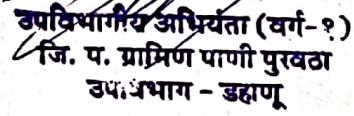 उपविभागीय अभियंता (वर्ग-१)
जि. प. ग्रामिण पाणी पुरवठा
उपविभाग - डहाणू